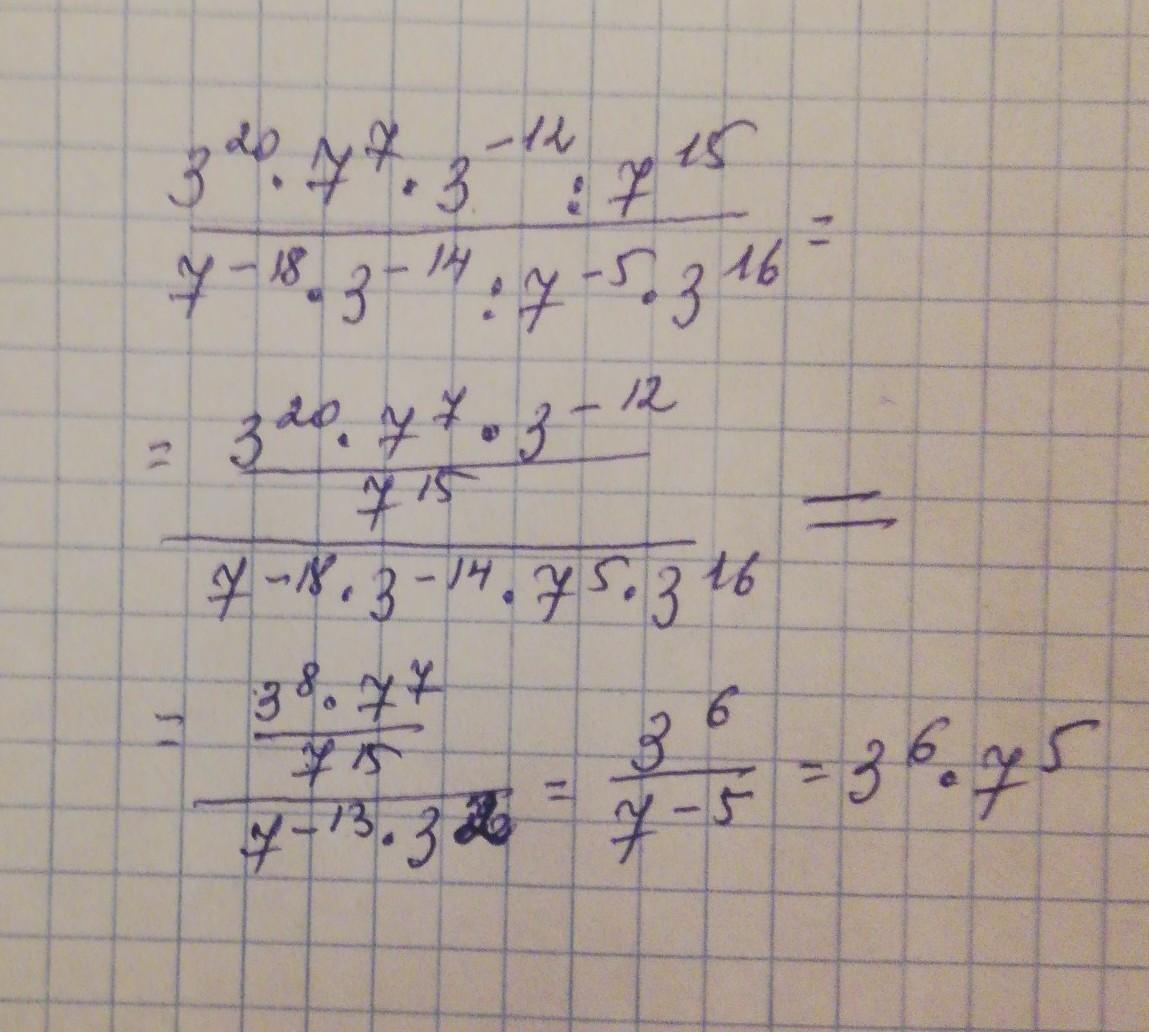 3^20 · 7^7 · 3^-12 : 7^15
7^-18 · 3^-14 : 7^-5 · 3^16 =
= 3^20 · 7^7 · 3^-12
7^15 =
7^-18 · 3^-14 · 7^5 · 3^16
= 3^8 · 7^7
7^15
7^-13 · 3^2 = 3^6 / 7^-5 = 3^6 · 7^5